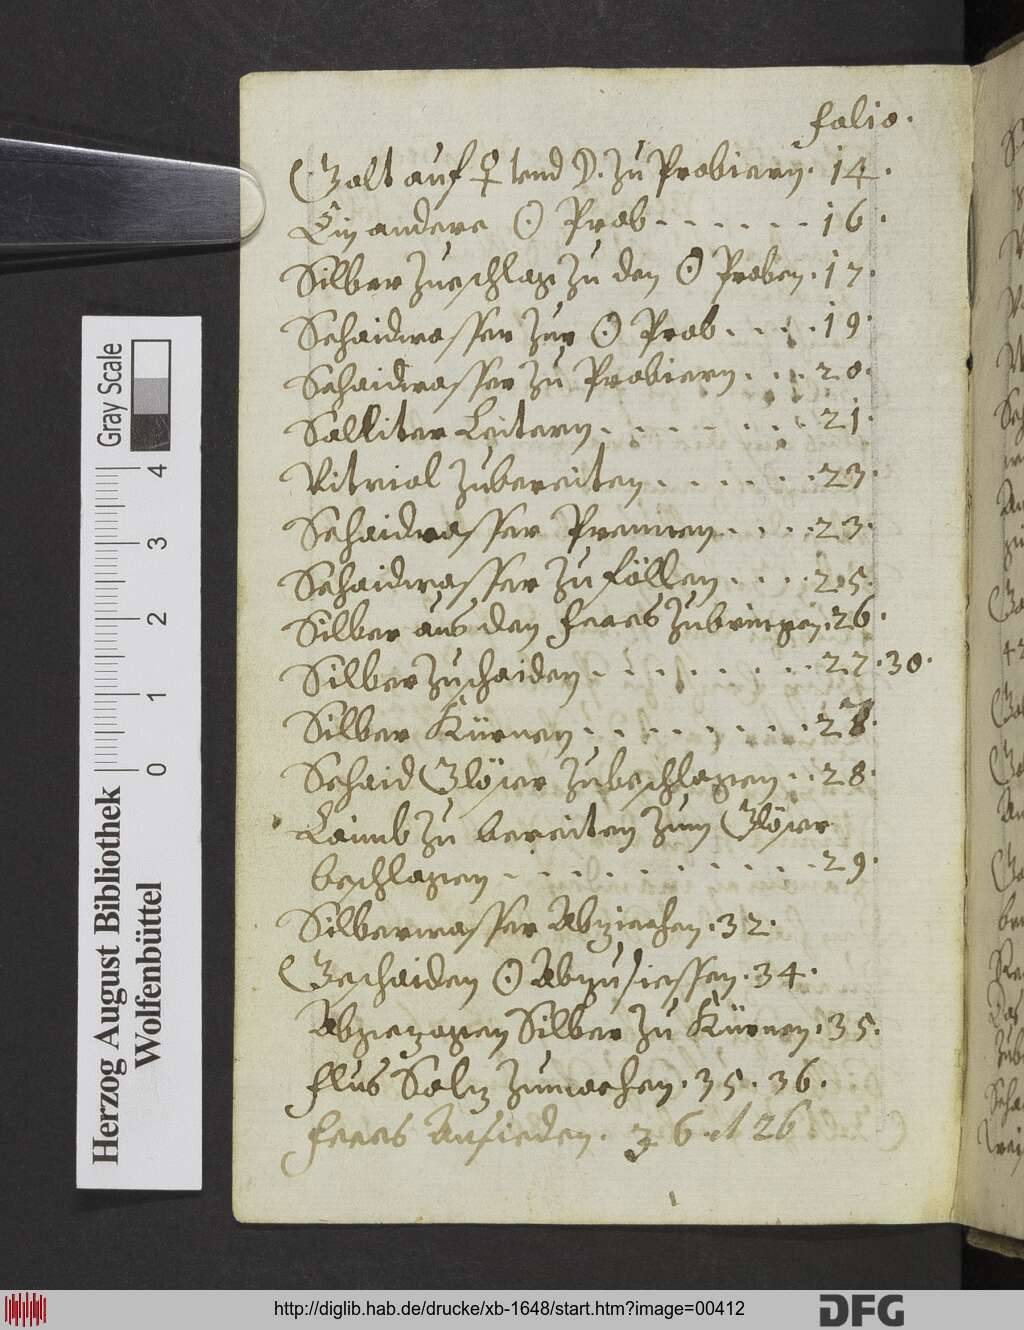 folio.
Golt auf ♀ vnd ☽. zu Probiern. 14.
Ein andere ☉ Prob - - - - - - 16.
Silber Zueschlag zu den ☉ Proben. 17.
Schaidwasser zur ☉ Prob. . . . 19.
Schaidwasser zu Probiern . . . 20.
Salliter Leitern . . . . . . . 21.
Vitriol zubereiten . . . . . . 23.
Schaidwasser Prennen . . . . 23.
Schaidwasser zu föllen . . . . 25.
Silber aus den feces zubringen. 26.
Silber zuschaiden . . . . . . . . 27. 30.
Silber Kürnen . . . . . . . . 28.
Schaid Glöser zubeschlagen . . 28.
Laimb zu bereiten zum Glöser
beschlagen - . . . . . . . . . 29.
Silberwasser Abziechen. 32.
Geschaiden ☉ Abzusiessen. 34.
Abgezogen Silber zu Kürnen. 35.
flus Saltz zumachen. 35. 36.
feces Aussieden. 36 et 26
Gray Scale
0 1 2 3 4
Herzog August Bibliothek
Wolfenbüttel
http://diglib.hab.de/drucke/xb-1648/start.htm?image=00412
DFG